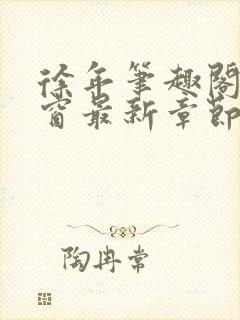 徐年笔趣阁
窗最新章节
陶冉常